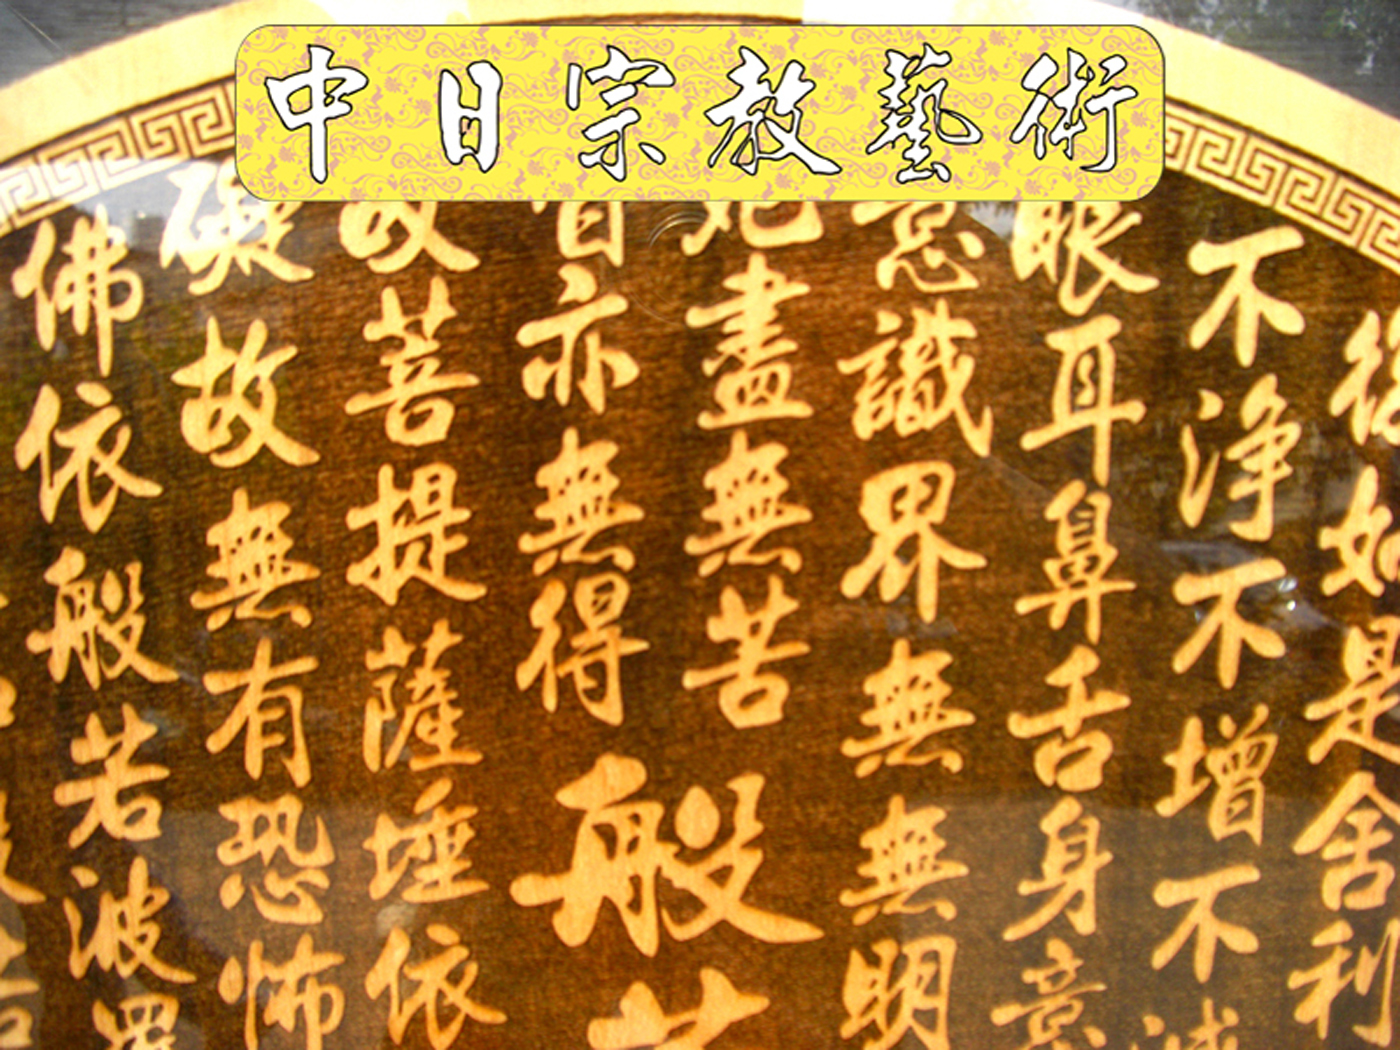 中日宗教藝術
復如是舍利
不淨不增不減
眼耳鼻舌身意
意識界無無明
死盡無苦
皆亦無得
般若
故菩提薩埵依
礙故無有恐怖
佛依般若波羅